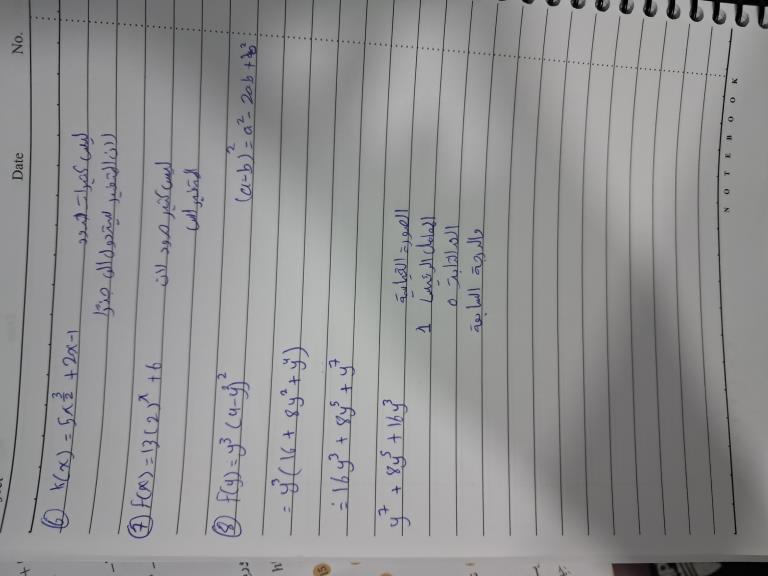 Date No.
⑥ k(x) = 5x^(3/2) + 2x-1 ليس كثيرات حدود
(لان المتغير
⑦ f(x) = 13(2)^x + 6 ليس كثير حدود لان
المتغير اس
⑧ f(y) = y³(4-y)² (a-b)² = a² - 2ab + b²
= y³(16 + 8y² + y⁴)
= 16y³ + 8y⁵ + y⁷
y⁷ + 8y⁵ + 16y³ الصورة القياسية
المعامل الرئيسي 1
0
والدرجة السابعة
NOTEBOOK